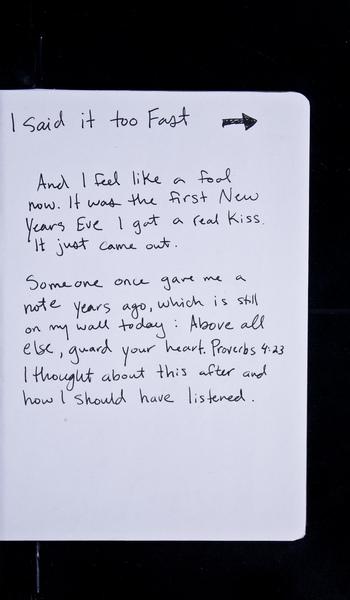 I said it too Fast →
And I feel like a fool
now. It was the first New
Years Eve I got a real Kiss.
It just came out.
Someone once gave me a
note years ago, which is still
on my wall today: Above all
else, guard your heart. Proverbs 4:23
I thought about this after and
how I should have listened.